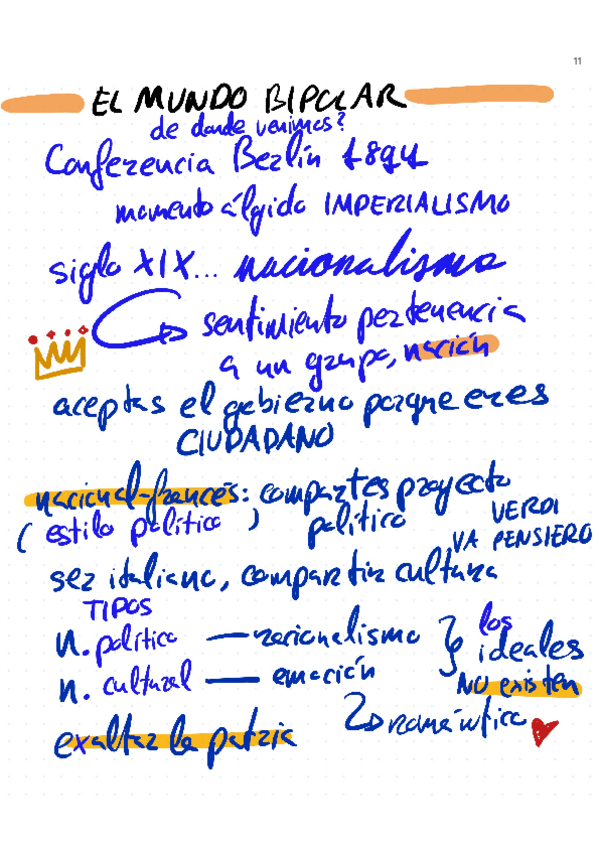 11
EL MUNDO BIPOLAR
de donde venimos?
Conferencia Berlín 1894
momento álgido IMPERIALISMO
siglo XIX... nacionalismo
sentimiento pertenencia
a un grupo, nación
aceptas el gobierno porque eres
CIUDADANO
nacional-francés: compartes proyecto
(estilo político) político
VERDI
VA PENSIERO
ser italiano, compartir cultura
TIPOS
n. político — racionalismo
n. cultural — emoción
los
ideales
NO existen
romántico
exaltar la patria